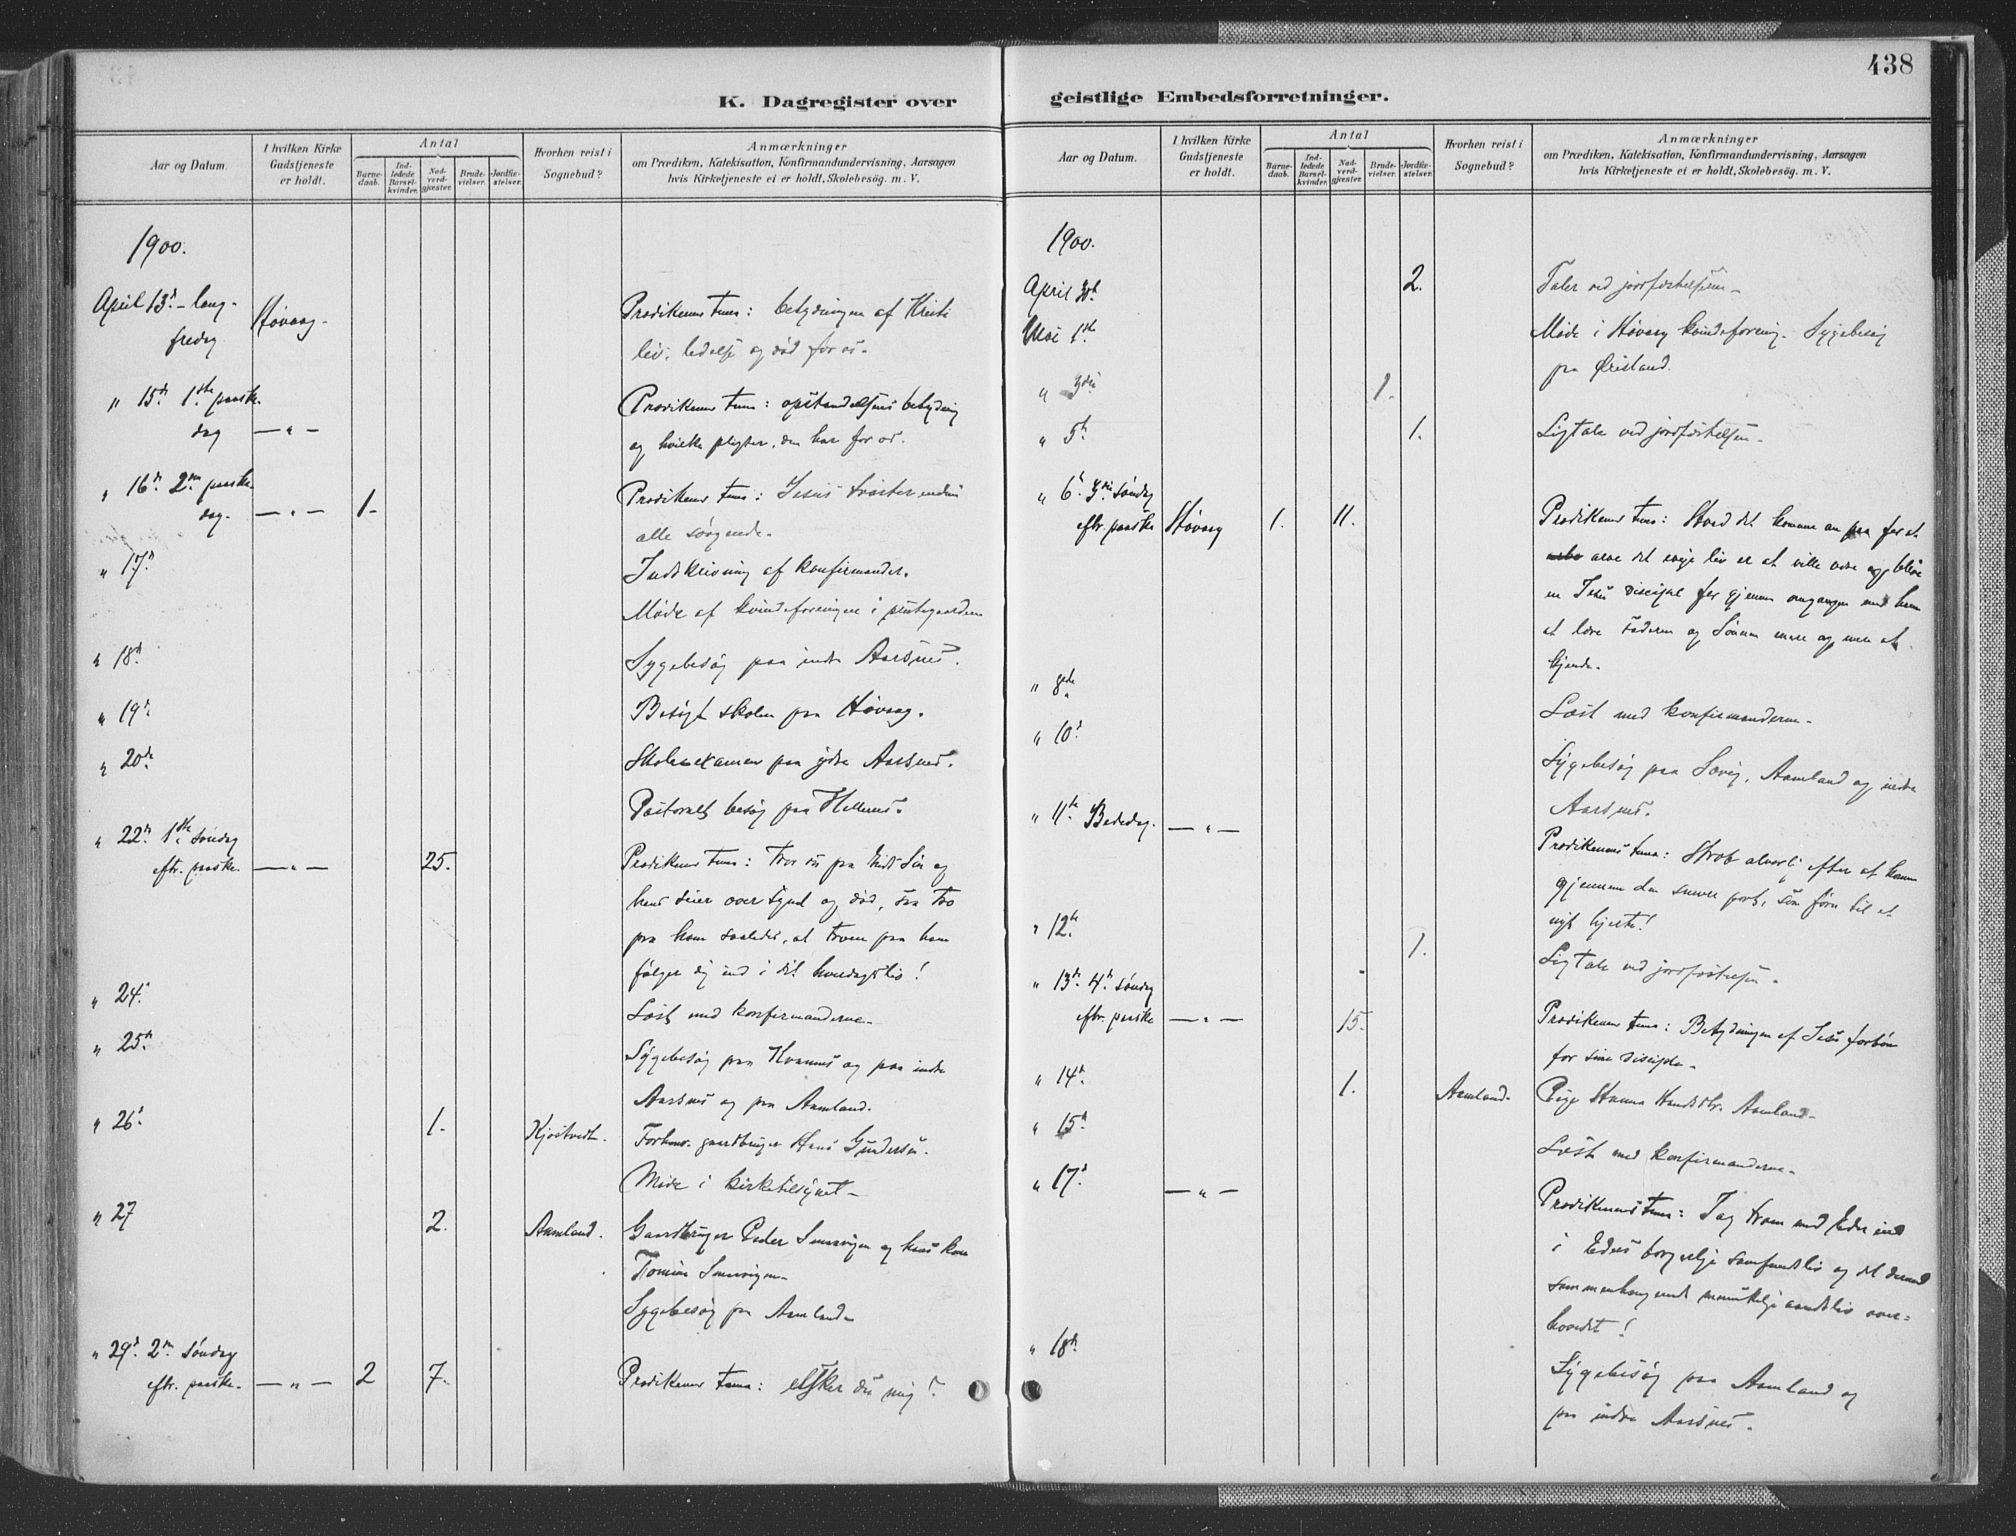 438
K. Dagregister over
Aar og Datum.
I hvilken Kirke Gudstjeneste er holdt.
Antal
Barnedaab.
Indledede Barselkvinder.
Nadverdgjæster.
Brudevielser.
Jordfæstelser.
Hvorhen reist i Sognebud?
Anmærkninger
om Prædiken, Katekisation, Konfirmandundervisning, Aarsagen
hvis Kirketjeneste ei er holdt, Skolebesøg. m. V.
1900.
April 13de - lang-
fredag Høvaag. Prædikenens tema: betydningen af Kristi
liv, lidelse og død for os.
" 15de 1ste paaske-
dag — " — Prædikenens tema: opstandelsens betydning
og hvilke pligter, den har for os.
" 16de 2den paaske-
dag. — " — 1. Prædikenens tema: Jesus trøster endnu
alle sørgende.
" 17de Indskrivning af konfirmander.
Møde af kvindeforeningen i prestegaarden
" 18de Sygebesøg paa indre Aarsnes.
" 19de Besøgt skolen paa Høvaag.
" 20de Skoleexamen paa ydre Aarsnes.
Pastoralt besøg paa Hellenes.
" 22de 1ste søndag
eftr. paaske. — " — 25. Prædikenens tema: Tror du paa Guds Søn og
hans seier over synd og død, saa tro
paa ham saaledes, at troen paa ham
følger dig ind i dit hverdagsliv!
" 24de Læst med konfirmanderne.
" 25de Sygebesøg paa Kvannes og paa indre
Aarsnes og paa Aamland.
" 26de 1. Kjøstvedt. Forhenv. gaardbruger Hans Gundersen.
Møde i kirketilsynet.
" 27 2. Aamland. Gaardbruger Peder og hans kone
Sygebesøg paa Aamland.
" 29de 2den søndag
eftr. paaske. — " — 2 7. Prædikenens tema: elsker du mig?
geistlige Embedsforretninger.
Aar og Datum.
I hvilken Kirke Gudstjeneste er holdt.
Antal
Barnedaab.
Indledede Barselkvinder.
Nadverdgjæster.
Brudevielser.
Jordfæstelser.
Hvorhen reist i Sognebud?
Anmærkninger
om Prædiken, Katekisation, Konfirmandundervisning, Aarsagen
hvis Kirketjeneste ei er holdt, Skolebesøg. m. V.
1900.
April 30te 2. Taler ved jordfæstelsen.
Mai 1ste Møde i Høvaag kvindeforening. Sygebesøg
paa Ørisland.
" 3die 1.
" 5te 1. Ligtale ved jordfæstelsen.
" 6te 3die søndag
eftr. paaske Høvaag 1. 11. Prædikenens tema: Hvad det komme an paa for at
arve det evige liv er at ville være og blive
en Jesu discipel for gjennem omgangen med ham
at lære Faderen og Sønnen mere og mere at
kjende.
" 8de Læst med konfirmanderne.
" 10de Sygebesøg paa Sævig, Aamland og indre
Aarsnes.
" 11te Bededag. — " — Prædikenens tema: Stræb alvorlig efter at komme
gjennem den snevre port, som fører til et
nyt hjerte!
" 12te 1. Ligtale ved jordfæstelsen.
" 13de 4de søndag
eftr. paaske — " — 15. Prædikenens tema: Betydningen af Jesu forbøn
for sine disciple.
" 14de 1. Aamland. Pige Hanna Aamland.
" 15de Læst med konfirmanderne.
" 17de — " — Prædikenens tema: Tag troen med Eder ind
i Eders borgerlige samfundsliv og det dermed
sammenhængende menneskelige aandsliv over-
hovedet!
" 18de Sygebesøg paa Aamland og
paa indre Aarsnes.